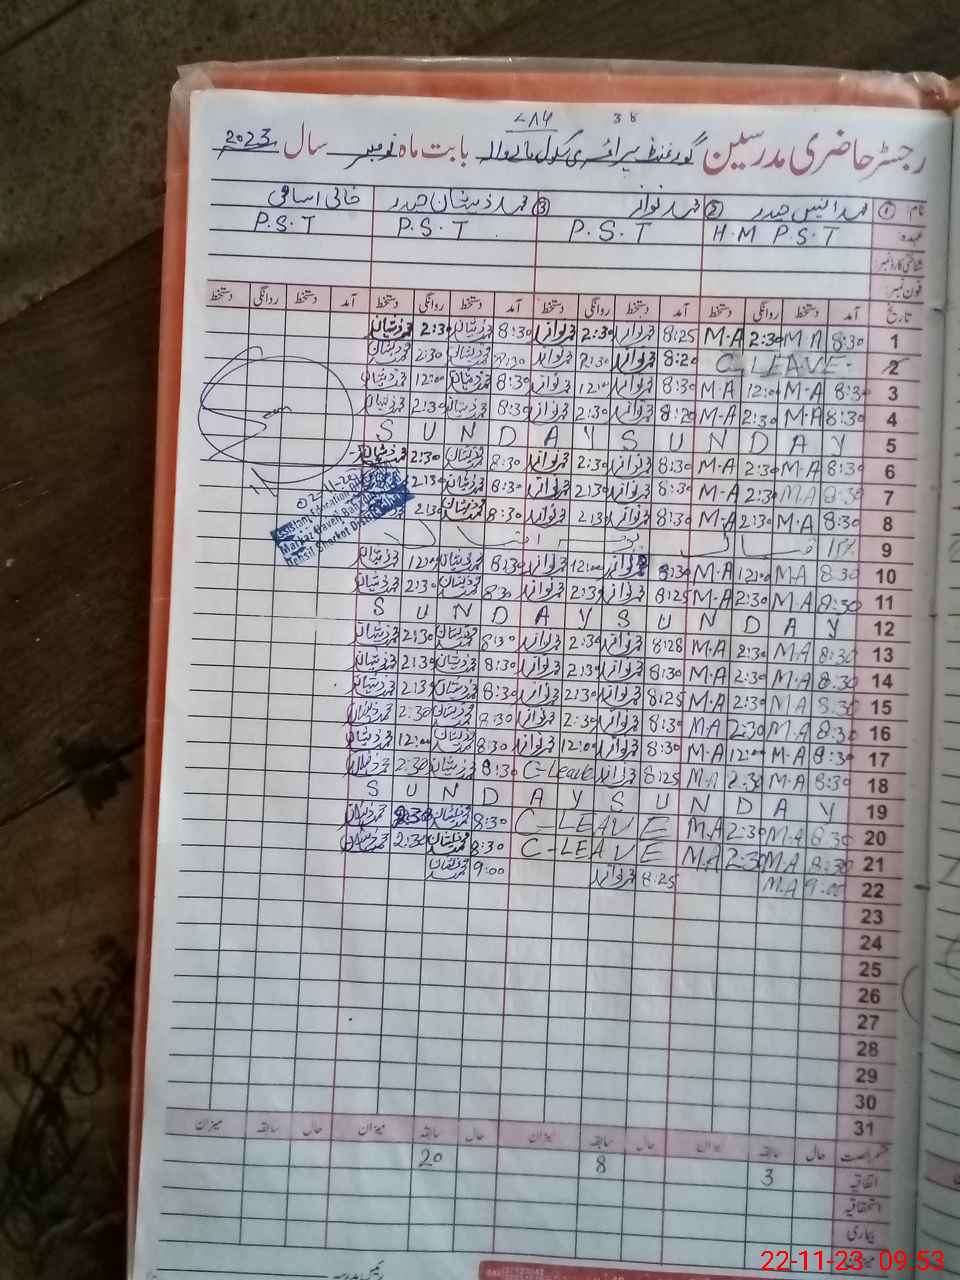 ٧٨٦
رجسٹر حاضری مدرسین گورنمنٹ پرائمری سکول بابت ماہ نومبر سال 2023
نام: ① محمد انیس حیدر ② محمد نواز ③ محمد ذیشان حیدر خالی اسامی
عہدہ: H.M P.S.T P.S.T P.S.T P.S.T
شناختی کارڈ نمبر:
فون نمبر:
تاریخ آمد دستخط روانگی دستخط آمد دستخط روانگی دستخط آمد دستخط روانگی دستخط آمد دستخط روانگی دستخط
1 8:30 M-A 2:30 M-A 8:25 محمد نواز 2:30 محمد نواز 8:30 محمد ذیشان 2:30 محمد ذیشان
2 C-LEAVE 8:20 محمد نواز 2:30 محمد نواز 8:30 محمد ذیشان 2:30 محمد ذیشان
3 8:30 M-A 12:00 M-A 8:30 محمد نواز 12:00 محمد نواز 8:30 محمد ذیشان 12:00 محمد ذیشان
4 8:30 M-A 2:30 M-A 8:20 محمد نواز 2:30 محمد نواز 8:30 محمد ذیشان 2:30 محمد ذیشان
5 S U N D A Y S U N D A Y
6 8:30 M-A 2:30 M-A 8:30 محمد نواز 2:30 محمد نواز 8:30 محمد ذیشان 2:30 محمد ذیشان
7 8:30 M-A 2:30 M-A 8:30 محمد نواز 2:30 محمد نواز 8:30 محمد ذیشان 2:30
8 8:30 M-A 2:30 M-A 8:30 محمد نواز 2:30 محمد نواز 8:30 محمد ذیشان 2:30
9
10 8:30 M-A 12:00 M-A 8:30 محمد نواز 12:00 محمد نواز 8:30 محمد ذیشان 12:00 محمد ذیشان
11 8:30 M-A 2:30 M-A 8:25 محمد نواز 2:30 محمد نواز 8:30 محمد ذیشان 2:30 محمد ذیشان
12 S U N D A Y S U N D A Y
13 8:30 M-A 2:30 M-A 8:28 محمد نواز 2:30 محمد نواز 8:30 محمد ذیشان 2:30 محمد ذیشان
14 8:30 M-A 2:30 M-A 8:30 محمد نواز 2:30 محمد نواز 8:30 محمد ذیشان 2:30 محمد ذیشان
15 8:30 M-A 2:30 M-A 8:25 محمد نواز 2:30 محمد نواز 8:30 محمد ذیشان 2:30 محمد ذیشان
16 8:30 M-A 2:30 M-A 8:30 محمد نواز 2:30 محمد نواز 8:30 محمد ذیشان 2:30 محمد ذیشان
17 8:30 M-A 12:00 M-A 8:30 محمد نواز 12:00 محمد نواز 8:30 محمد ذیشان 12:00 محمد ذیشان
18 8:30 M-A 2:30 M-A 8:25 محمد نواز C-Leave 8:30 محمد ذیشان 2:30 محمد ذیشان
19 S U N D A Y S U N D A Y
20 8:30 M-A 2:30 M-A C-LEAVE 8:30 محمد ذیشان 2:30 محمد ذیشان
21 8:30 M-A 2:30 M-A C-LEAVE 8:30 محمد ذیشان 2:30 محمد ذیشان
22 9:00 M-A 8:25 محمد نواز 9:00 محمد ذیشان
23
24
25
26
27
28
29
30
31
قسم رخصت حال سابقہ میزان حال سابقہ میزان حال سابقہ میزان حال سابقہ میزان
اتفاقیہ 3 8 20
استحقاقیہ
بیماری
22-11-23 09.53